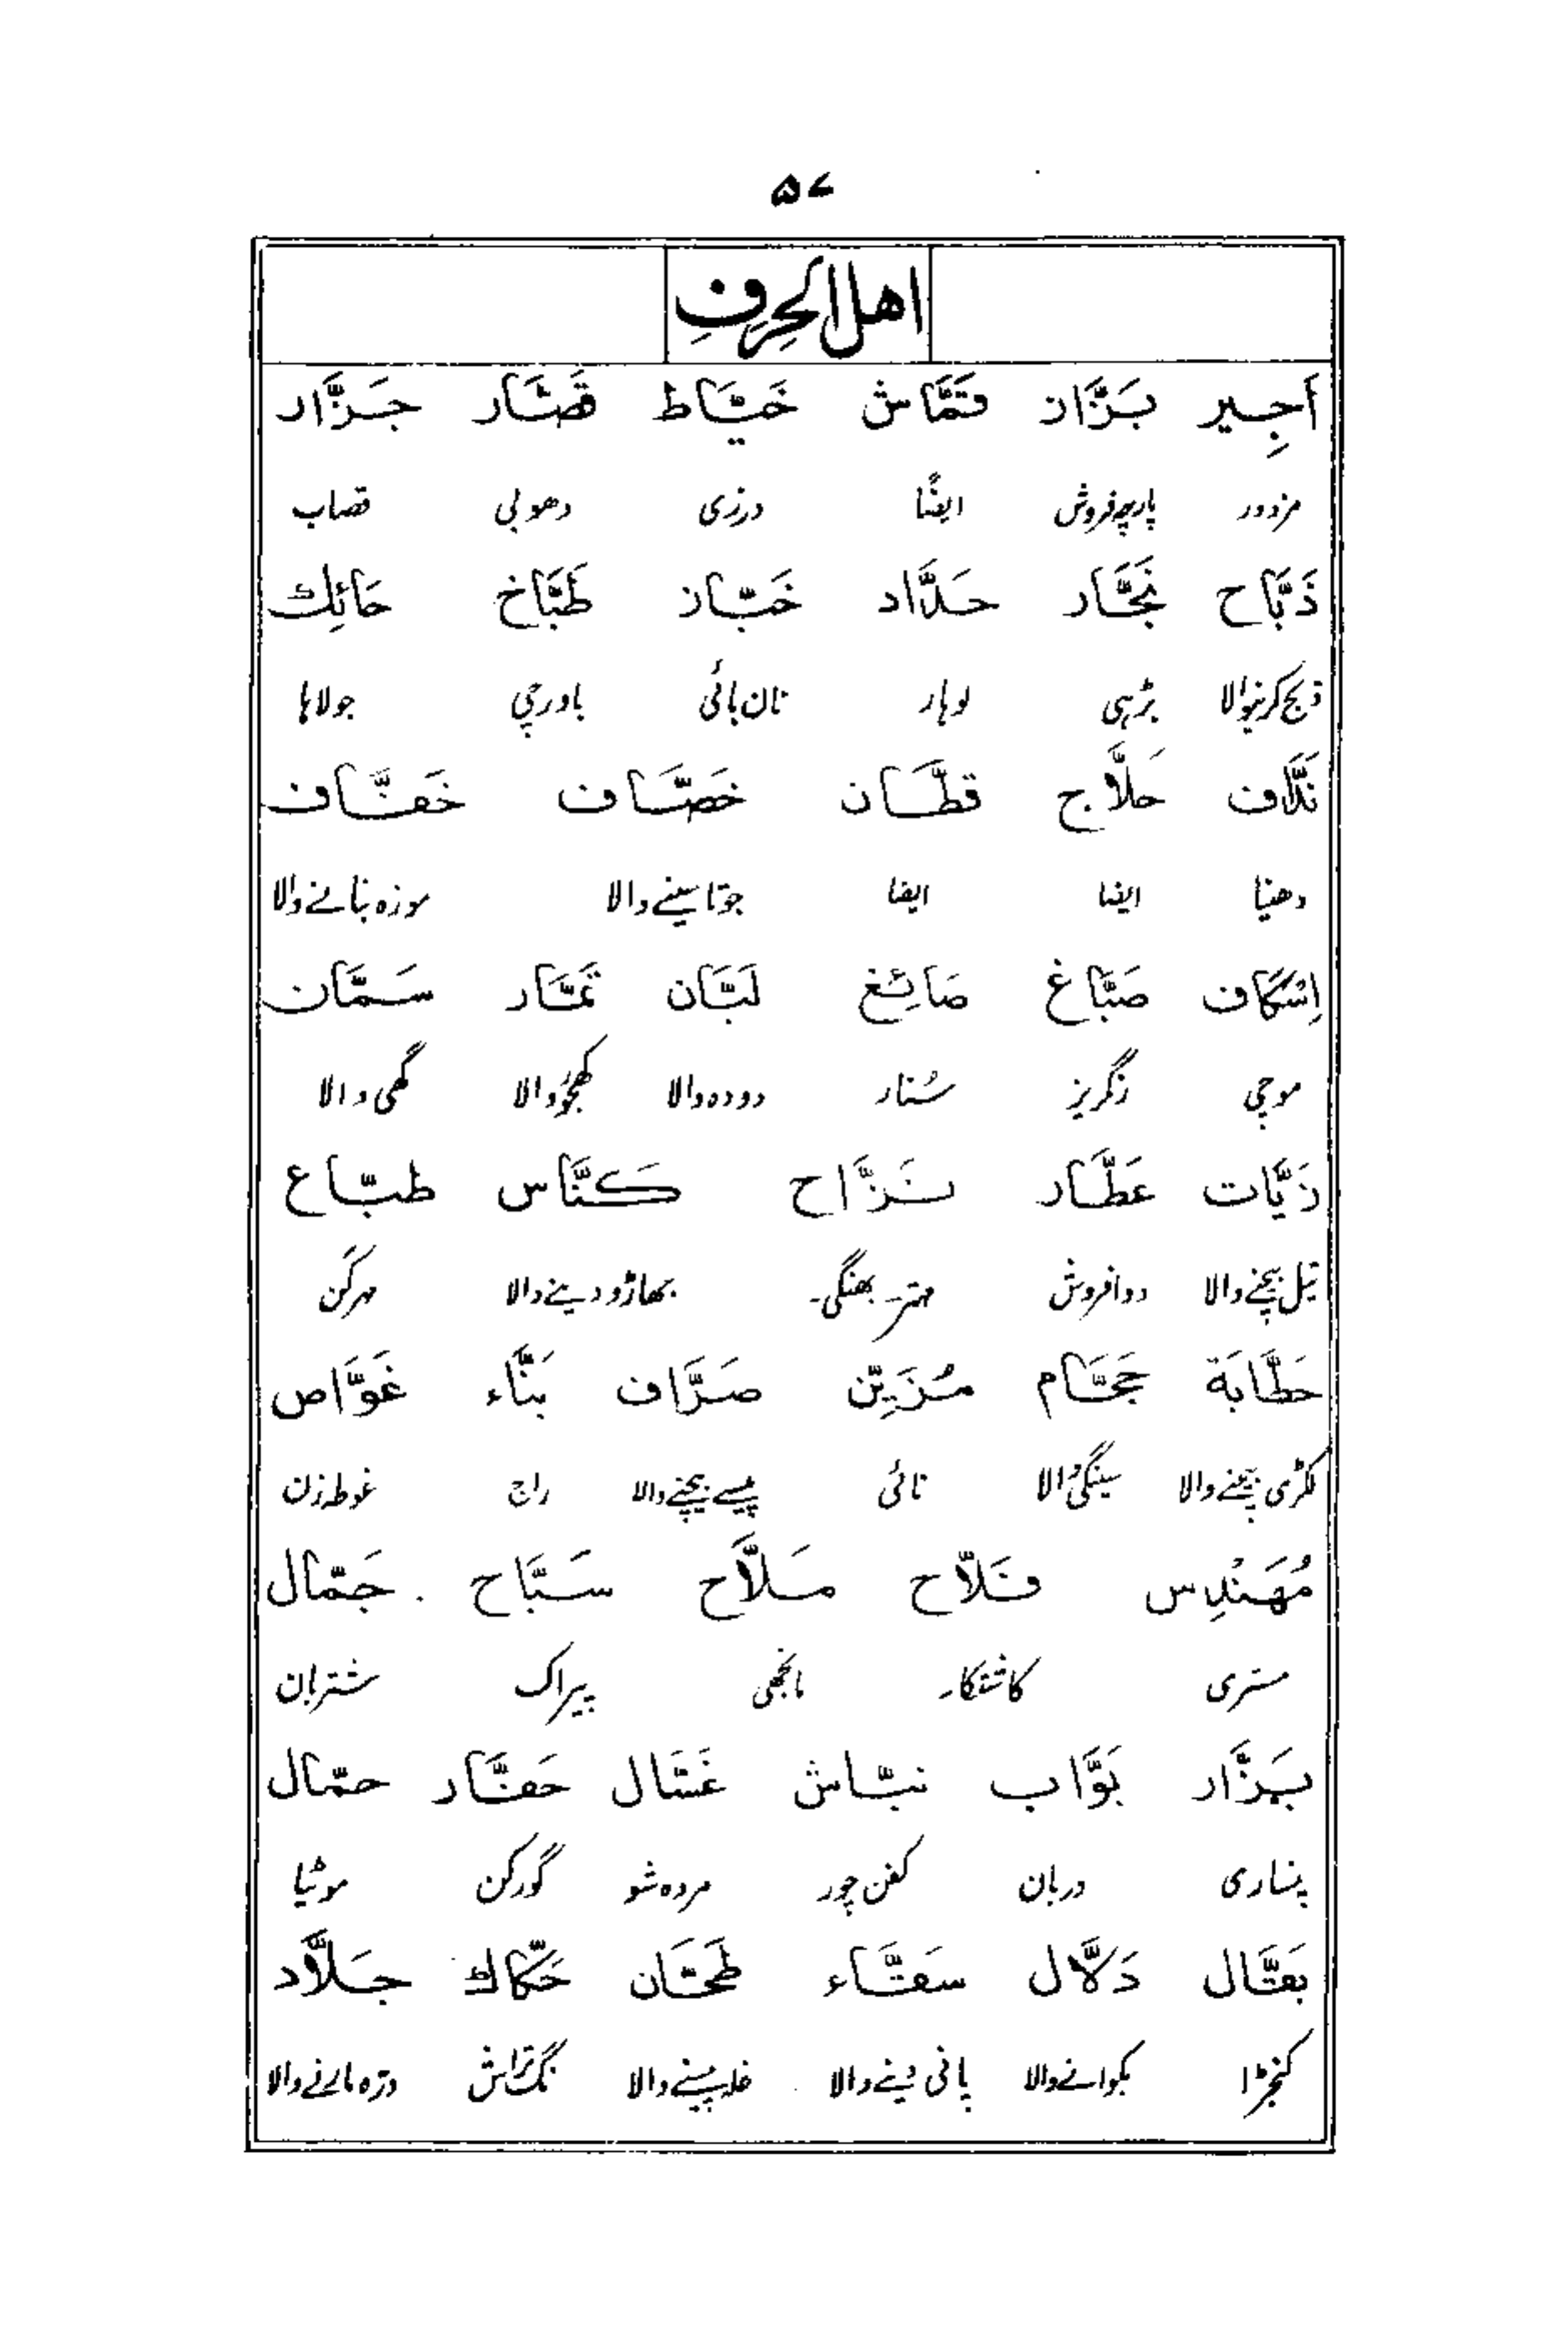 ۵۷
اهل الحِرَفِ
اَجِیر بَزَّاز قَمَّاش خَیَّاط قَصَّار جَزَّار
مزدور پارچہ فروش ایضًا درزی دھوبی قصاب
ذَبَّاح نَجَّار حَدَّاد خَبَّاز طَبَّاخ حَائِك
ذبح کرنیوالا بڑہی لوہار نان بائی باورچی جولاہا
نَدَّاف حَلَّاج قطَّان خَصَّاف خَفَّاف
دھنیا ایضا ایضا جوتا سینے والا موزہ بنانے والا
اِسْكَاف صَبَّاغ صَائِغ لَبَّان تَمَّار سَمَّان
موچی رنگریز سُنار دودہ والا کھجور والا گھی والا
زَیَّات عَطَّار نَزَّاح كَنَّاس طبَّاع
تیل بیچنے والا دوا فروش مہتر۔ بھنگی۔ جھاڑو دینے والا مہرکَن
حَطَّابَة حَجَّام مُزَیِّن صَرَّاف بَنَّاء غَوَّاص
لکڑی بیچنے والا سینگی والا نائی پیسے بیچنے والا راج غوطہ زن
مُهَنْدِس فَلَّاح مَلَّاح سَبَّاح جَمَّال
مستری کاشتکار مانجھی پیراک شتربان
بَزَّار بَوَّاب نبَّاش غَسَّال حَفَّار حمَّال
پنساری دربان کفن چور مردہ شو گورکن موٹیا
بَقَّال دَلَّال سَقَّاء طَحَّان حَكَّاك جَلَّاد
کنجڑا بکوانے والا پانی دینے والا غلہ پیسنے والا نگ تراش درّہ مارنے والا